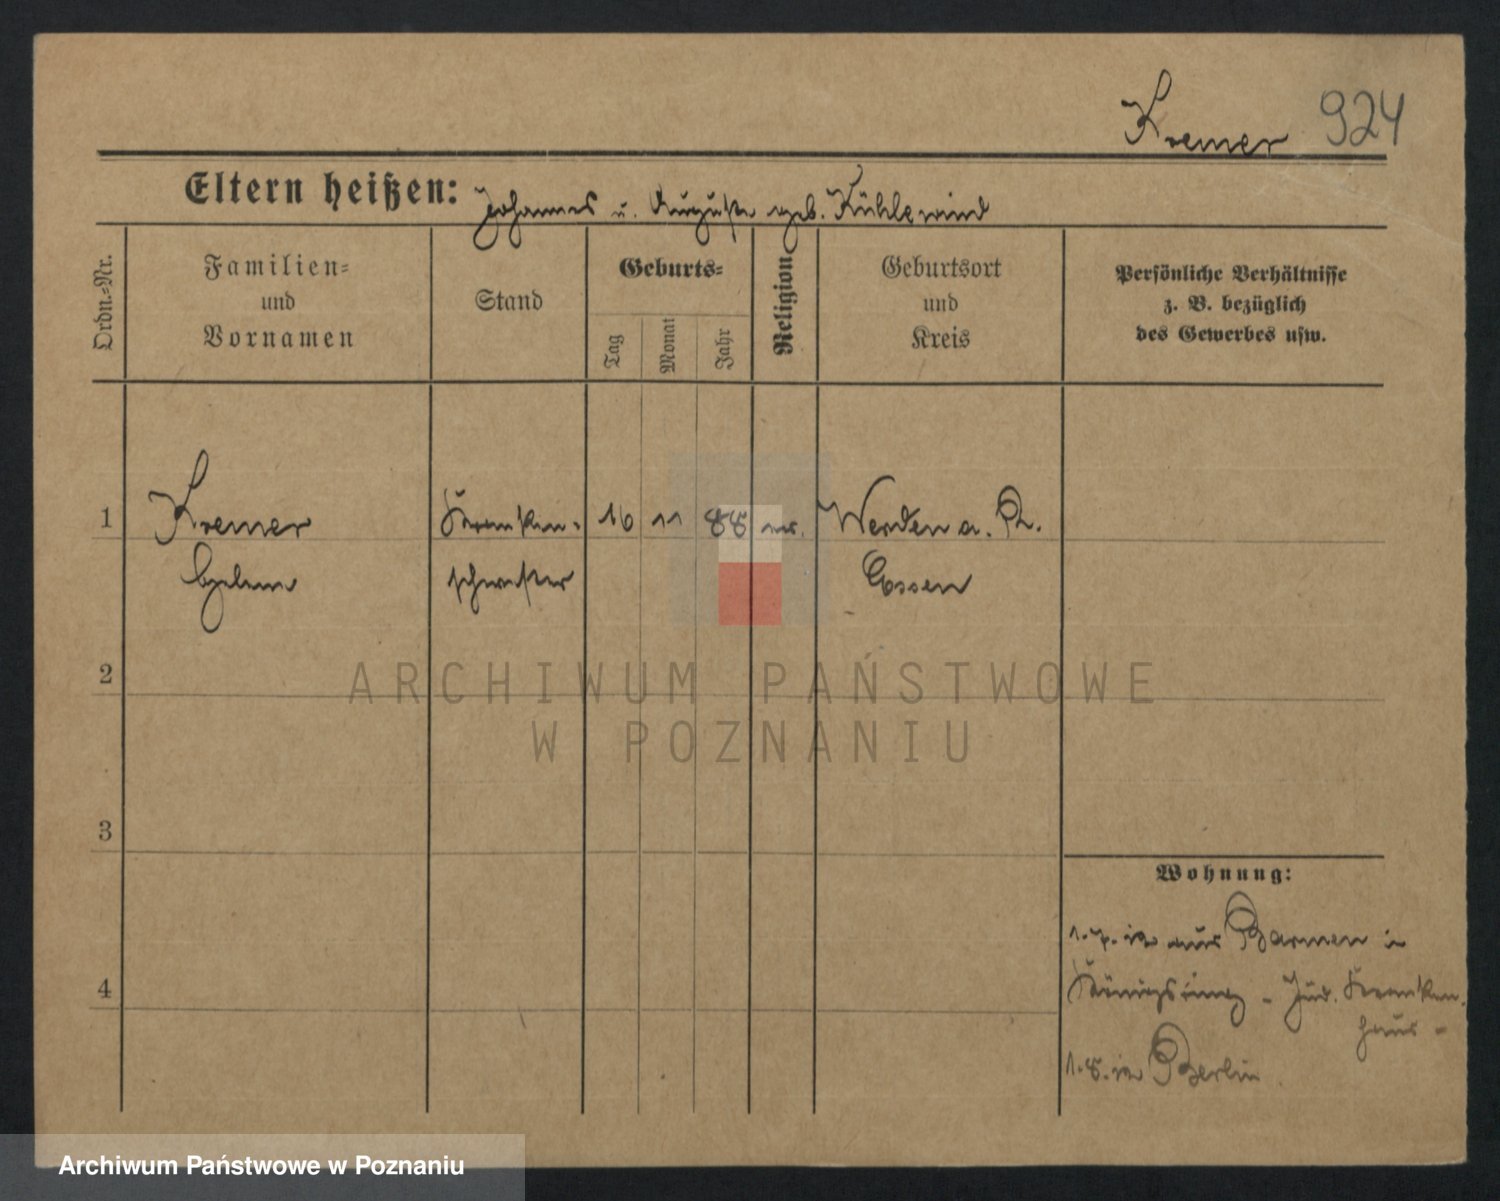 Kremer 924
Eltern heißen: Johannes u. Auguste geb. Kühlewind
Ordn.=Nr.
Familien=
und
Vornamen
Stand
Geburts=
Tag
Monat
Jahr
Religion
Geburtsort
und
Kreis
Persönliche Verhältnisse
z. B. bezüglich
des Gewerbes usw.
1 Kremer Kranken= 16 11 88 ev. Werden a. R.
Helene schwester Essen
2
ARCHIWUM PAŃSTWOWE
W POZNANIU
3
4
Wohnung:
aus Barmen in
Königsring - Jüd. Kranken
haus -
Berlin
Archiwum Państwowe w Poznaniu